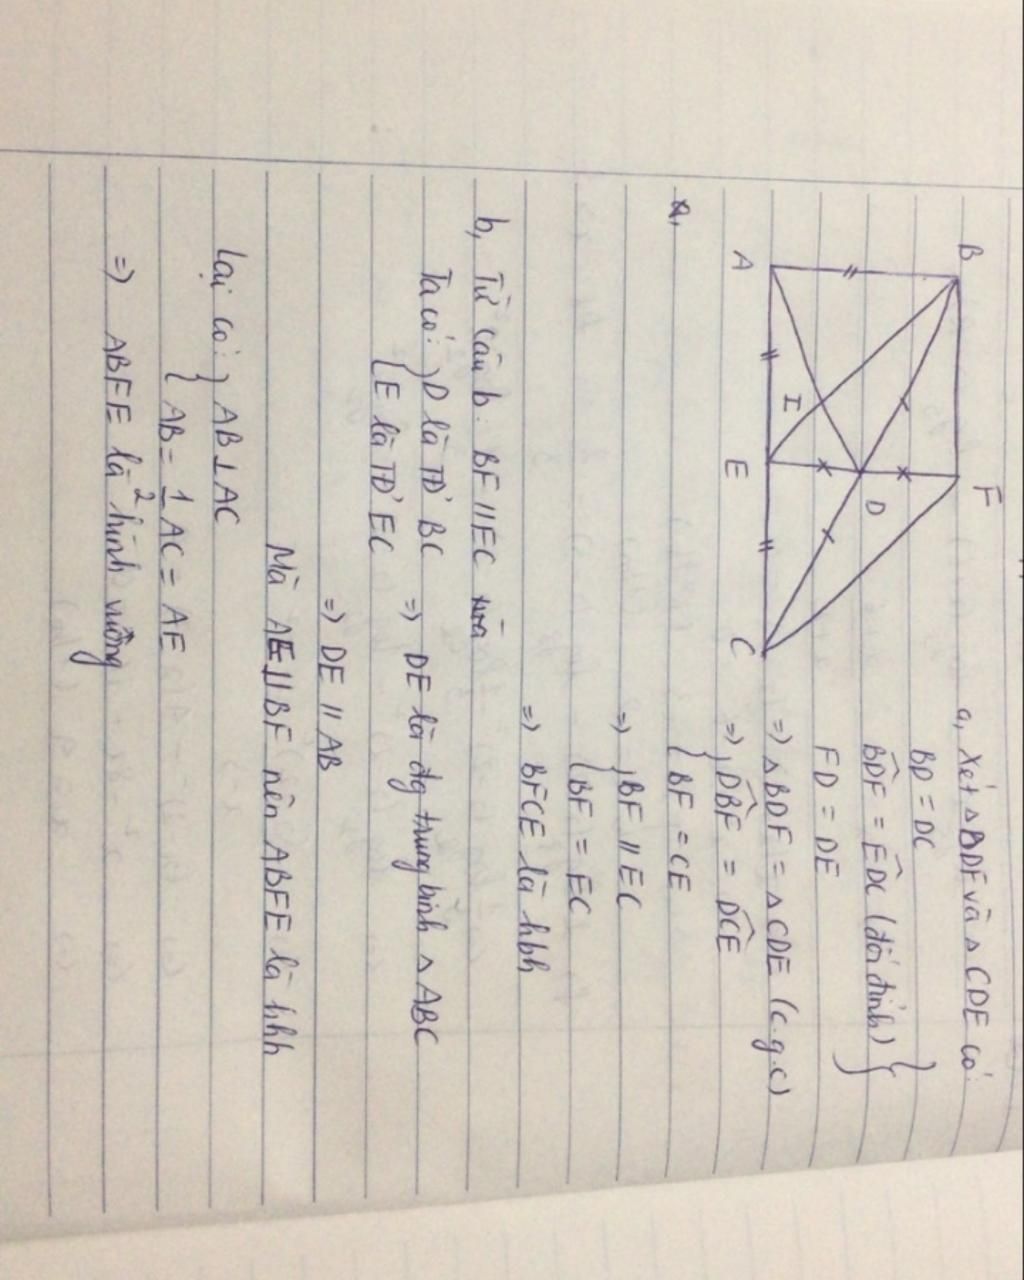 B
F
A
I
E
D
C
a, Xét △BDF và △CDE có:
BD = DC
BDF = EDC (đối đỉnh)
FD = DE
=> △BDF = △CDE (c.g.c)
=> { DBF = DCE
BF = CE
=> { BF // EC
BF = EC
=> BFCE là hbh
b, Từ câu b: BF // EC
Ta có: { D là TĐ BC => DE là đg trung bình △ABC
E là TĐ EC
=> DE // AB
Mà AE // BF nên ABFE là hbh
Lại có: { AB ⊥ AC
AB = 1/2 AC = AE
=> ABFE là hình vuông